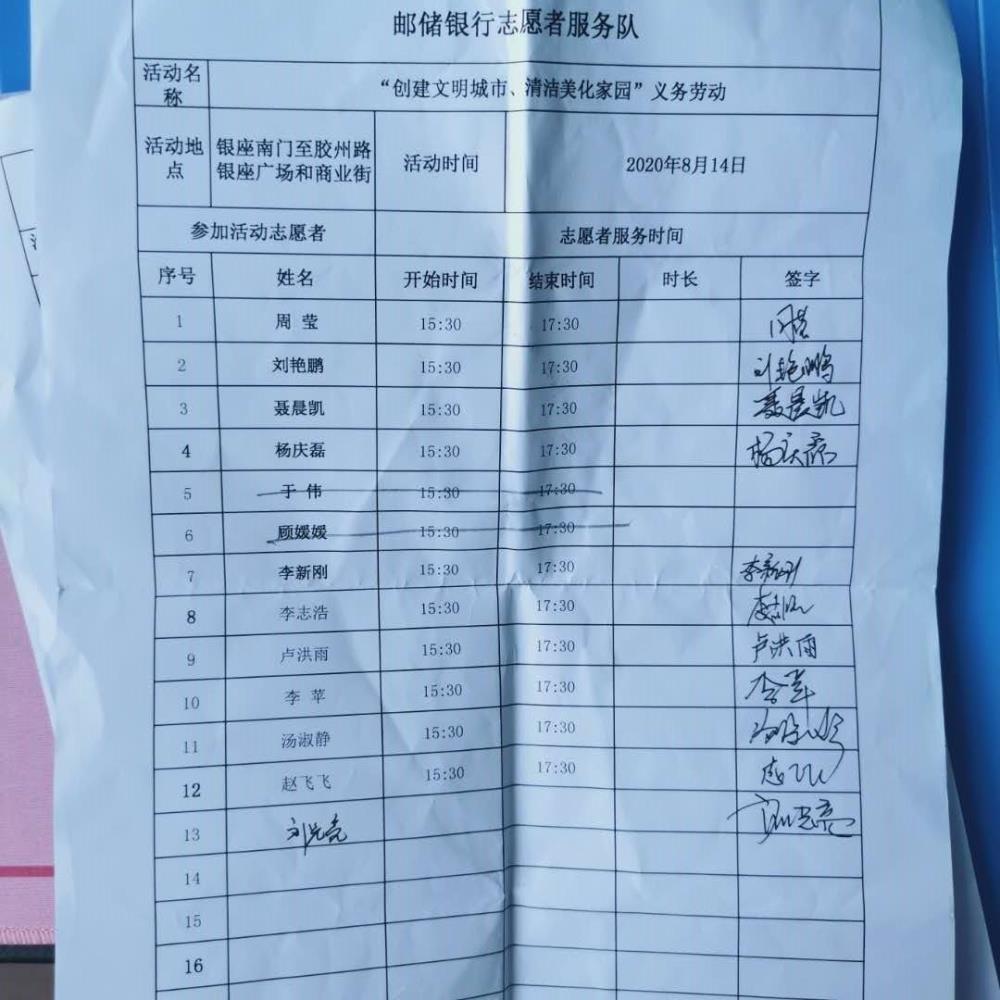 邮储银行志愿者服务队
活动名称 “创建文明城市、清洁美化家园”义务劳动
活动地点 银座南门至胶州路银座广场和商业街 活动时间 2020年8月14日
参加活动志愿者 志愿者服务时间
序号 姓名 开始时间 结束时间 时长 签字
1 周 莹 15:30 17:30 周莹
2 刘艳鹏 15:30 17:30 刘艳鹏
3 聂晨凯 15:30 17:30 聂晨凯
4 杨庆磊 15:30 17:30 杨庆磊
5 于 伟 15:30 17:30
6 顾媛媛 15:30 17:30
7 李新刚 15:30 17:30 李新刚
8 李志浩 15:30 17:30
9 卢洪雨 15:30 17:30 卢洪雨
10 李 苹 15:30 17:30 李苹
11 汤淑静 15:30 17:30
12 赵飞飞 15:30 17:30
13
14
15
16